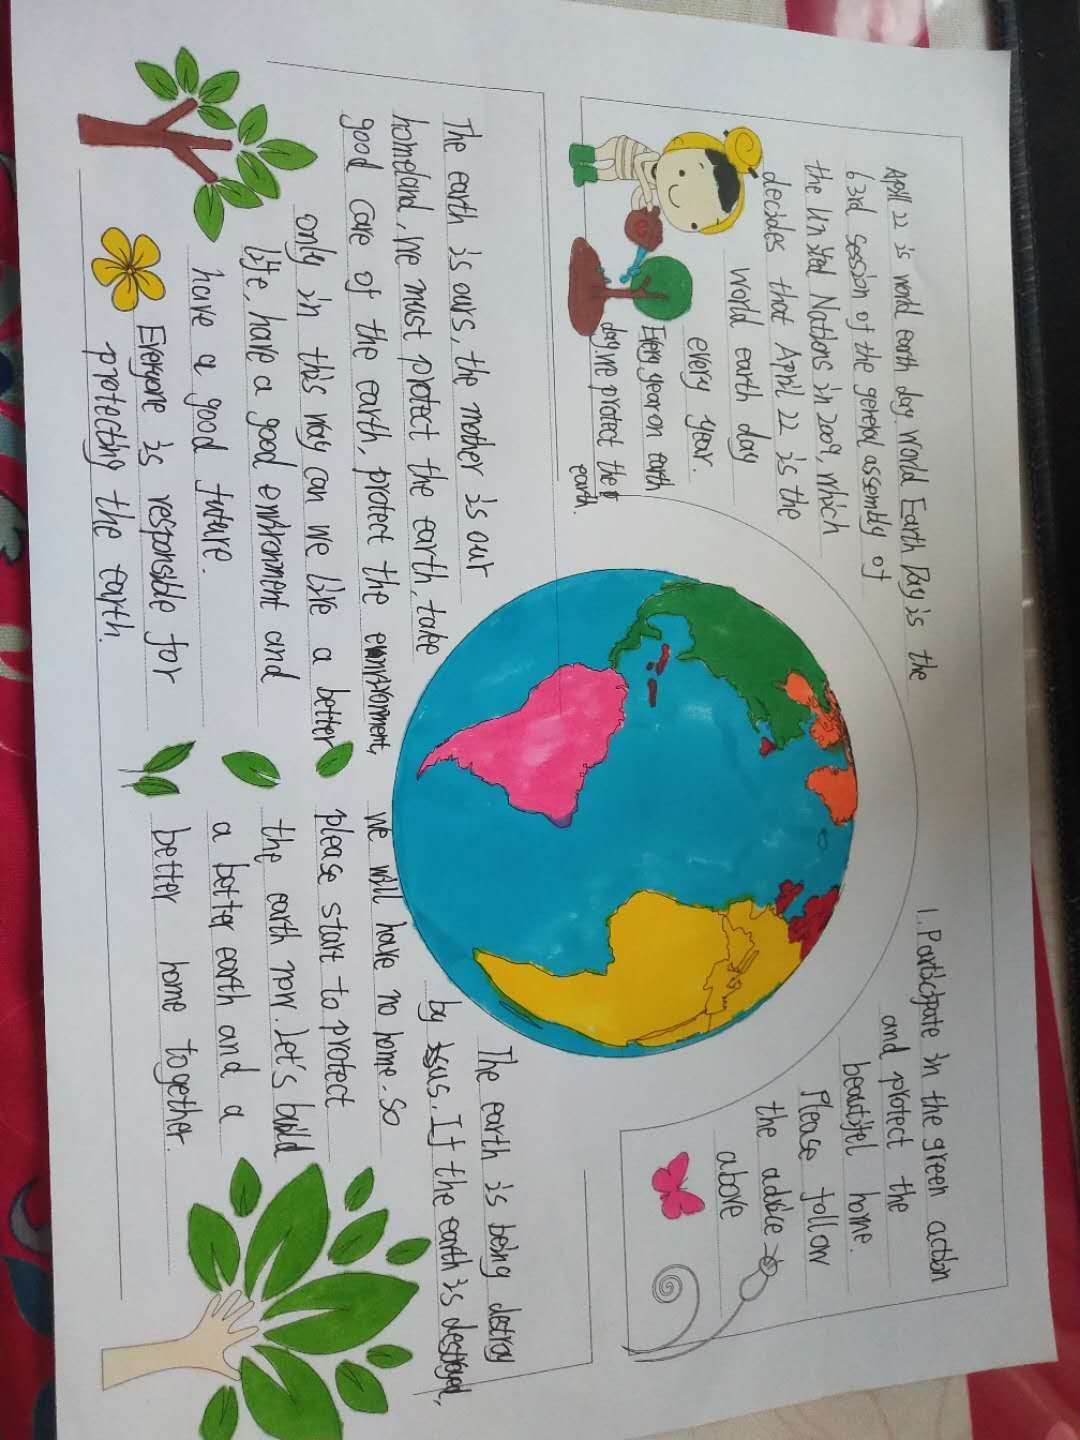 April 22 is world earth day. World Earth Day is the
63rd session of the general assembly of
the United Nations in 2009, which
decides that April 22 is the
world earth day
every year.
Every year on earth
day, we protect the
earth.
1. Participate in the green action
and protect the
beautifel home.
Please follow
the advice
above
The earth is ours, the mother is our
homeland, we must protect the earth, take
good care of the earth, protect the environment,
only in this way can we live a better
life, have a good environment and
have a good future.
Everyone is responsible for
protecting the earth.
The earth is being destroy
by us. If the earth is destroyed,
we will have no home. so
please start to protect
the earth now. Let's build
a better earth and a
better home together.